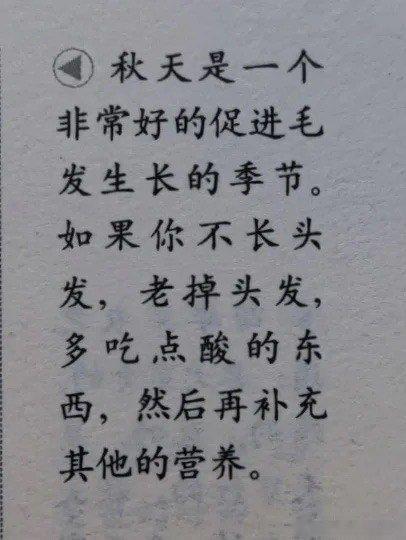 秋天是一个
非常好的促进毛
发生长的季节。
如果你不长头
发，老掉头发，
多吃点酸的东
西，然后再补充
其他的营养。